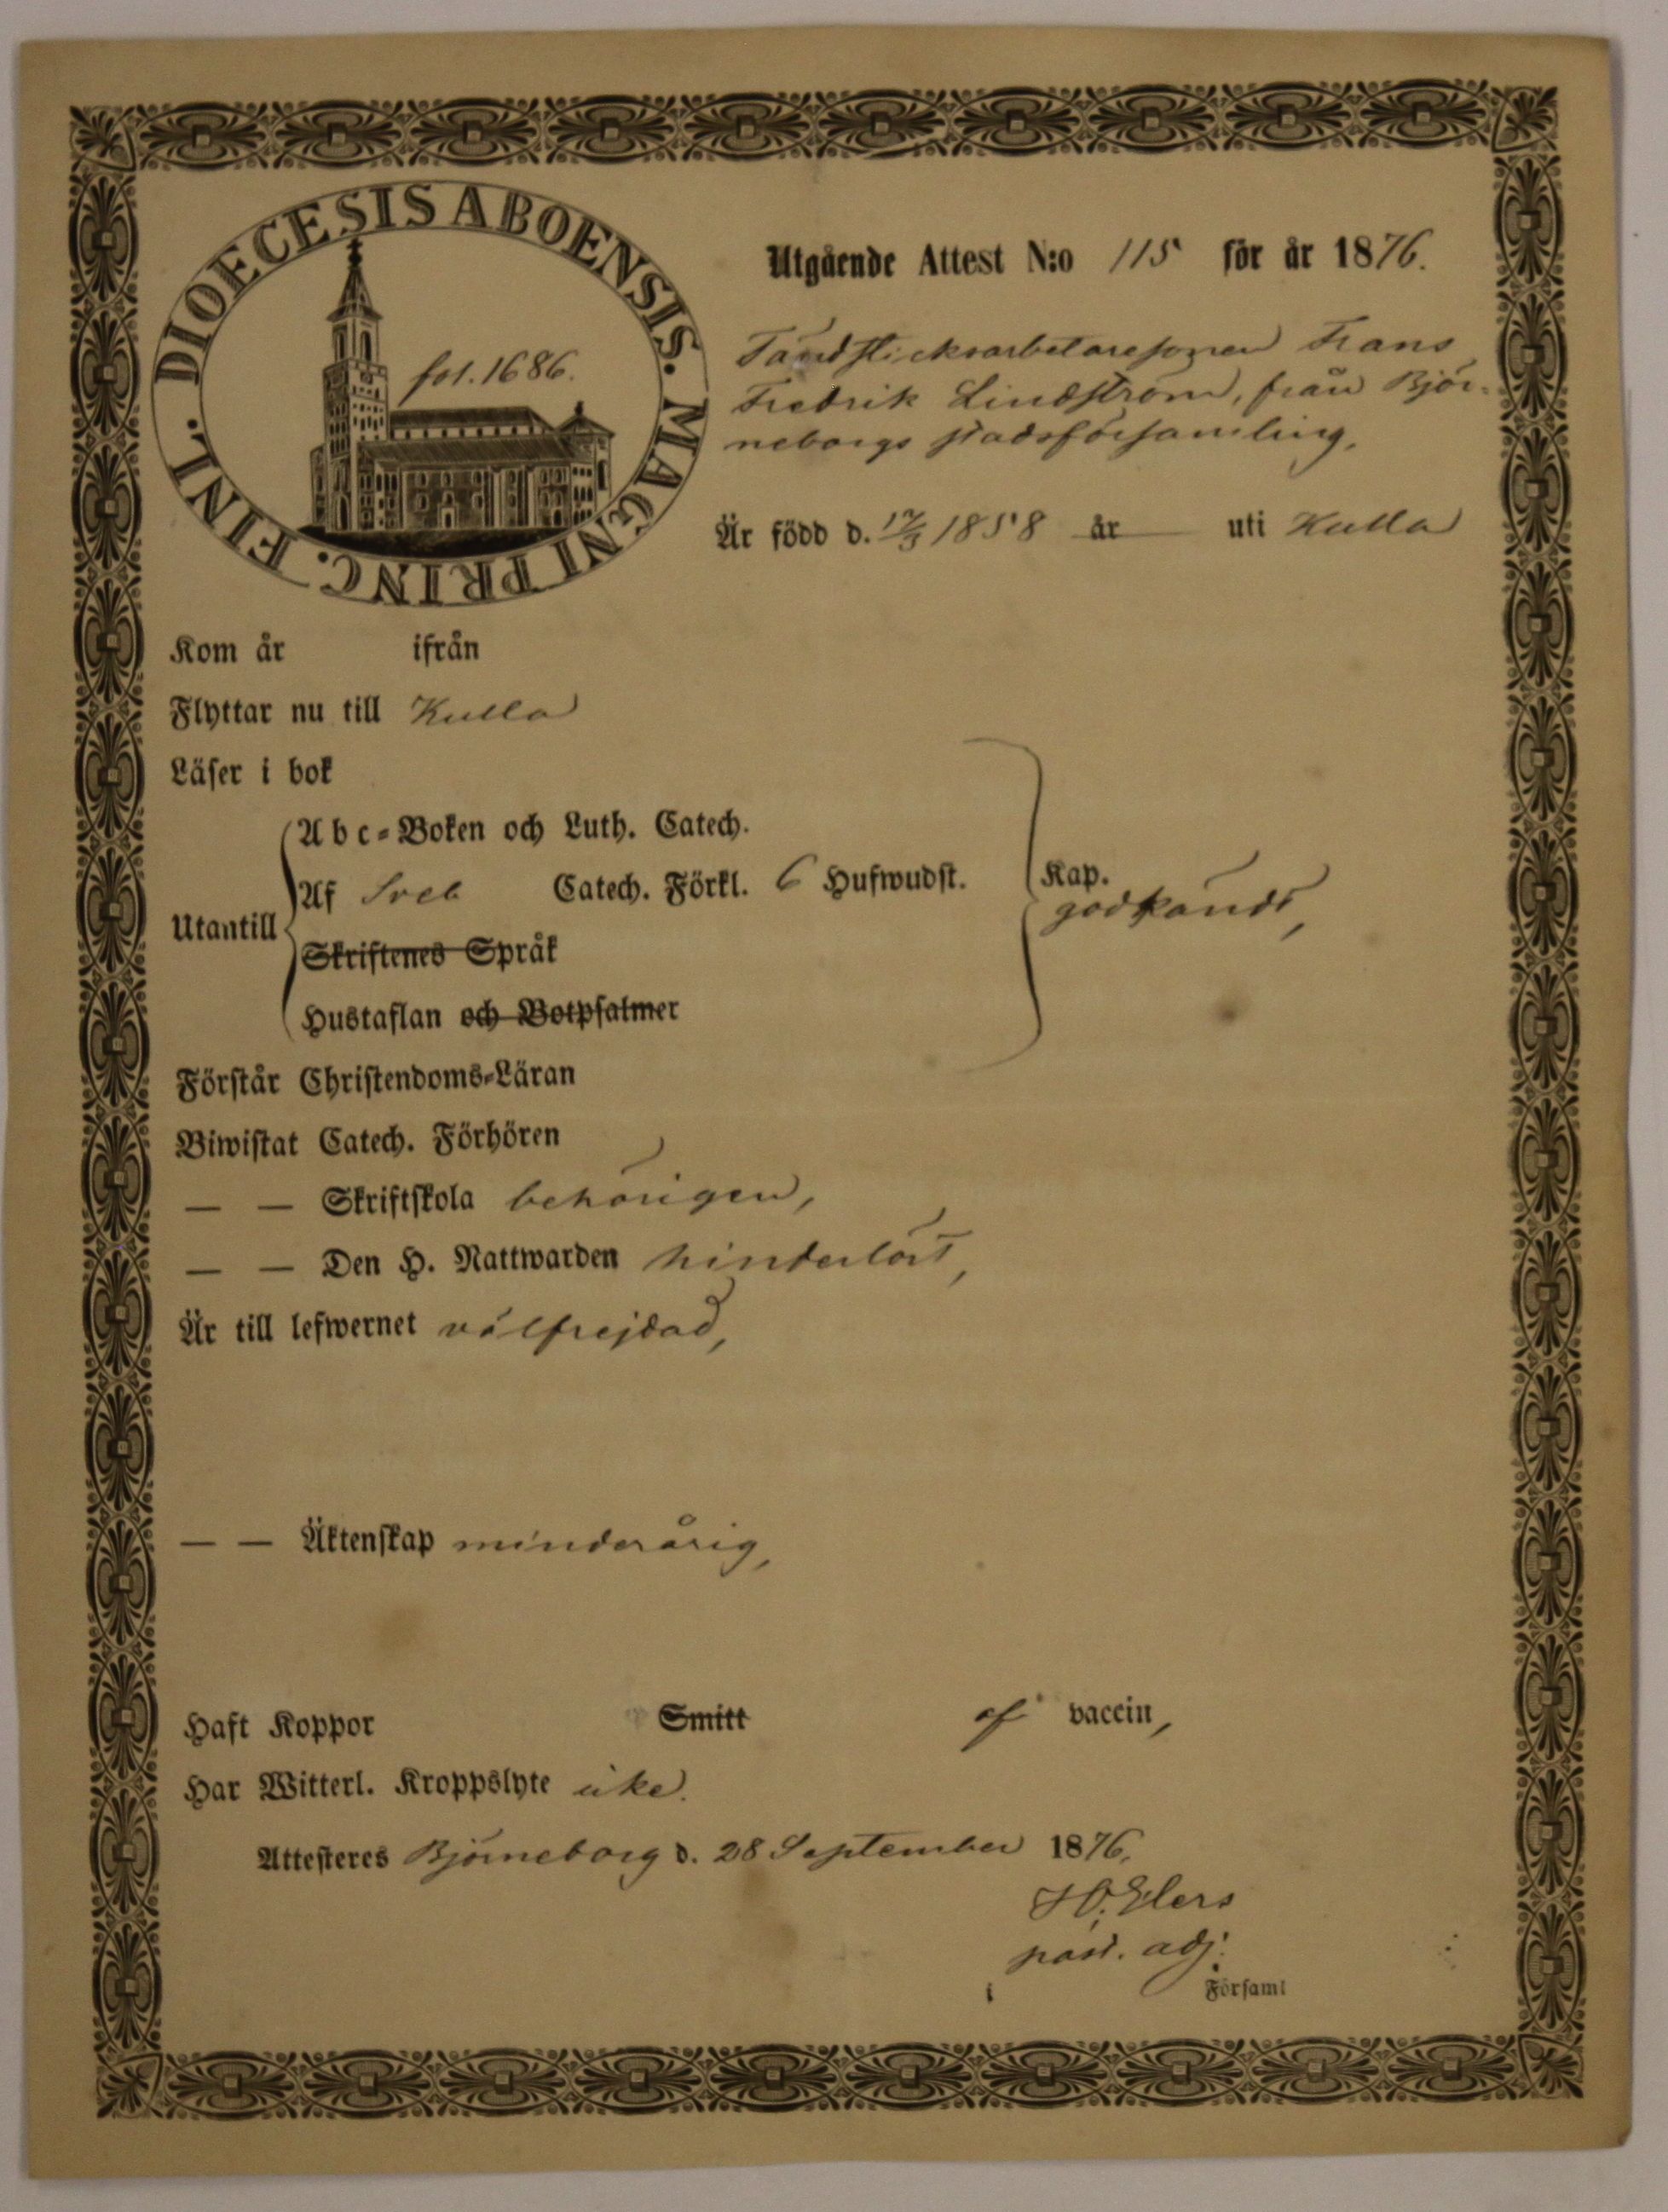 DIOECESIS ABOENSIS. MAGNI PRINC. FINL.
fol. 1686.
Utgående Attest N:o 115 för år 1876.
Tändsticksarbetaresonen Frans
Fredrik Lindström, från Björ-
neborgs stadsförsamling,
Är född d. 17/3 1858 år uti Kulla
Kom år ifrån
Flyttar nu till Kulla
Läser i bok
Abc-Boken och Luth. Catech.
Utantill
Af Sveb Catech. Förkl. 6 Hufwudst.
Kap.
godkändt,
Skriftenes Språk
Hustaflan och Botpsalmer
Förstår Christendoms-Läran
Biwistat Catech. Förhören
— — Skriftskola behörigen,
— — Den H. Nattwarden hinderlöst,
Är till lefwernet välfrejdad,
— — Äktenskap minderårig,
Haft Koppor Smitt af vaccin,
Har Witterl. Kroppslyte icke.
Attesteres Björneborg d. 28 September 1876.
past. adj.
i Församl